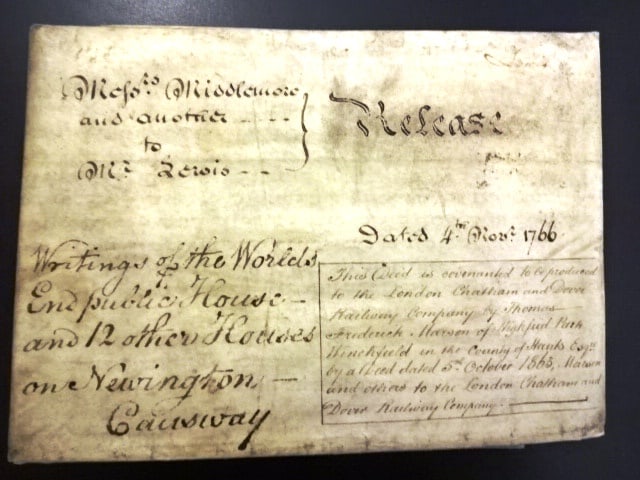 Messrs Middlemore
and another - - -
to
Mr. Lewis - -
Release
Dated 4th Novr. 1766
Writings of the Worlds
End public House -
and 12 other Houses
on Newington -
Causway
This Deed is covenanted to be produced
to the London Chatham and Dover
Railway Company by Thomas
Frederick Marson of Highfield Park
Winchfield in the County of Hants Esqre.
by a Deed dated 5th October 1865, Marson
and others to the London Chatham and
Dover Railway Company.